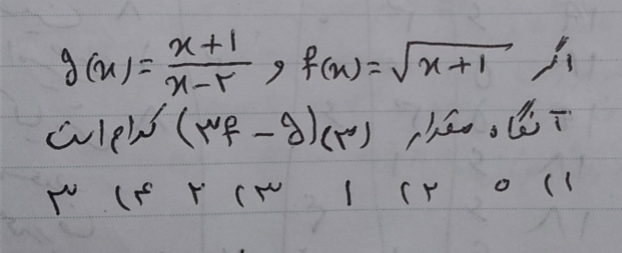 اگر f(x) = √x+1 و g(x) = x+1/x-۲
آنگاه مقدار (۳f - g)(۳) کدام است
۱) ۰ ۲) ۱ ۳) ۲ ۴) ۳